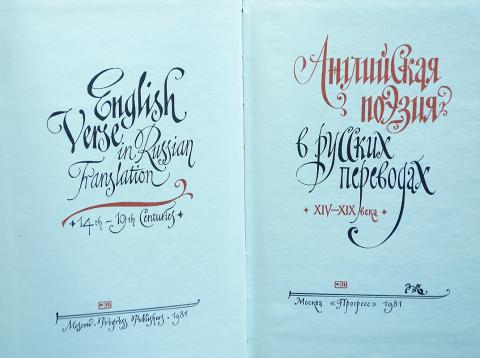 English
Verse
in Russian
Translation
14th–19th Centuries
Moscow · Progress Publishers · 1981
Английская
поэзия
в русских
переводах
XIV–XIX века
Москва «Прогресс» 1981